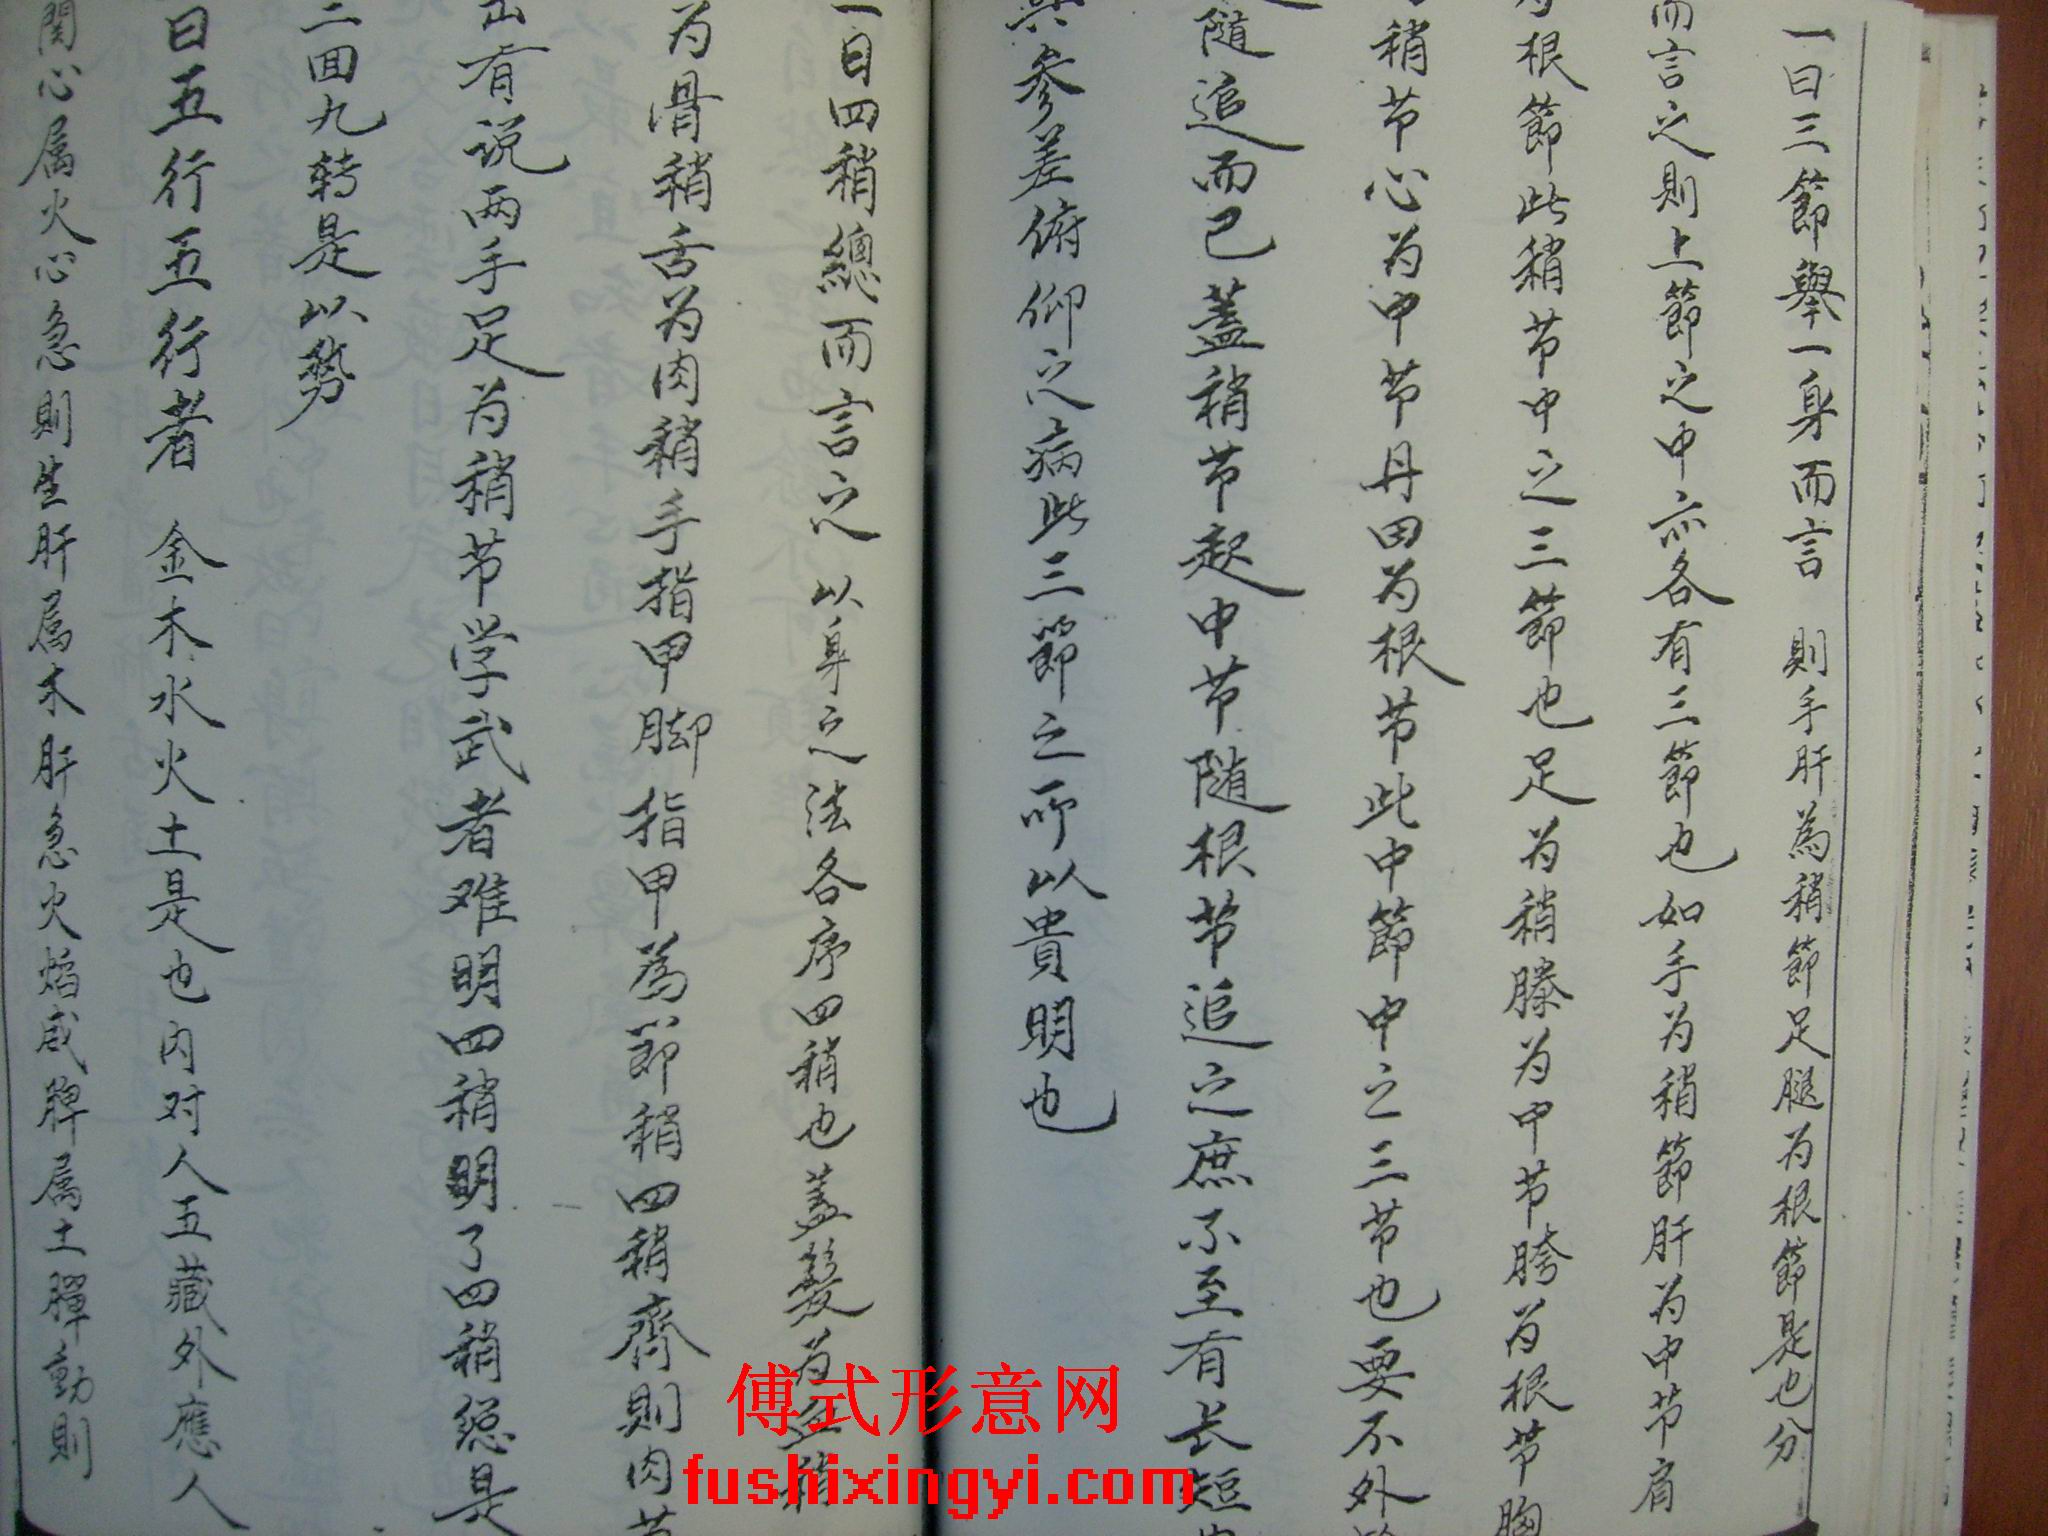 一曰三節舉一身而言 則手肝為稍節足腿为根節是也分
而言之則上節之中亦各有三節也如手为稍節肝为中节肩
为根節此稍节中之三節也足为稍膝为中节胯为根节胸
为稍节心为中节丹田为根节此中節中之三节也要不外
随追而已蓋稍节起中节随根节追之庶不至有长短
與参差俯仰之病此三節之所以貴明也
一曰四稍總而言之 以身之法各序四稍也蓋髮为血稍
为骨稍舌为肉稍手指甲脚指甲為節稍四稍齊則肉节
出有说两手足为稍节学武者难明四稍明了四稍總是
二回九转是以势
曰五行五行者 金木水火土是也内对人五藏外應人
関心属火心急則生肝属木肝急火焰成脾属土脾動則
傅式形意网
fushixingyi.com